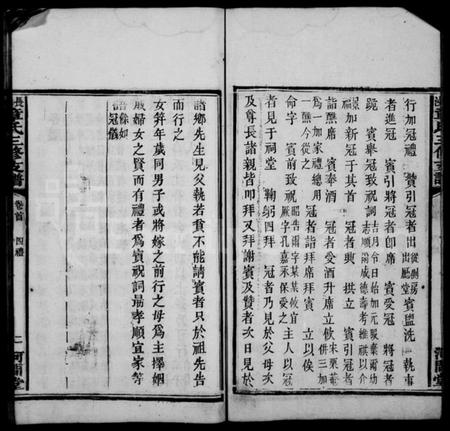 行加冠禮 贊引冠者出 從側房出廳堂 賓盥洗 執事
者進冠 賓引將冠者卽席 賓受冠 將冠者
跪 賓舉冠致祝詞 吉月令日始加元服棄爾幼志順爾成德壽考維祺以介
福 加新冠于其首 冠者興 拱立 賓引冠者
詣醮席 賓奉酒 冠者受酒升席立飲
為一加家禮總用 冠者詣拜席拜賓 立以俟
一醮今從之
命字 賓前致祝 昭告爾字某某攸宜 厥字孔嘉承保受之 主人以冠
者見于祠堂 鞠躬四拜 冠者乃見於父母次
及尊長諸親皆叩拜又拜謝賓及贊者次日見於
諸鄉先生見父執若貧不能請賓者只於祖先告
而行之
女筓年歲同男子或將嫁之前行之母為主擇姻
戚婦女之賢而有禮者為賓祝詞晶孝順宜家等
語餘如冠儀
章氏三修支譜 卷首 四禮 二 河間堂